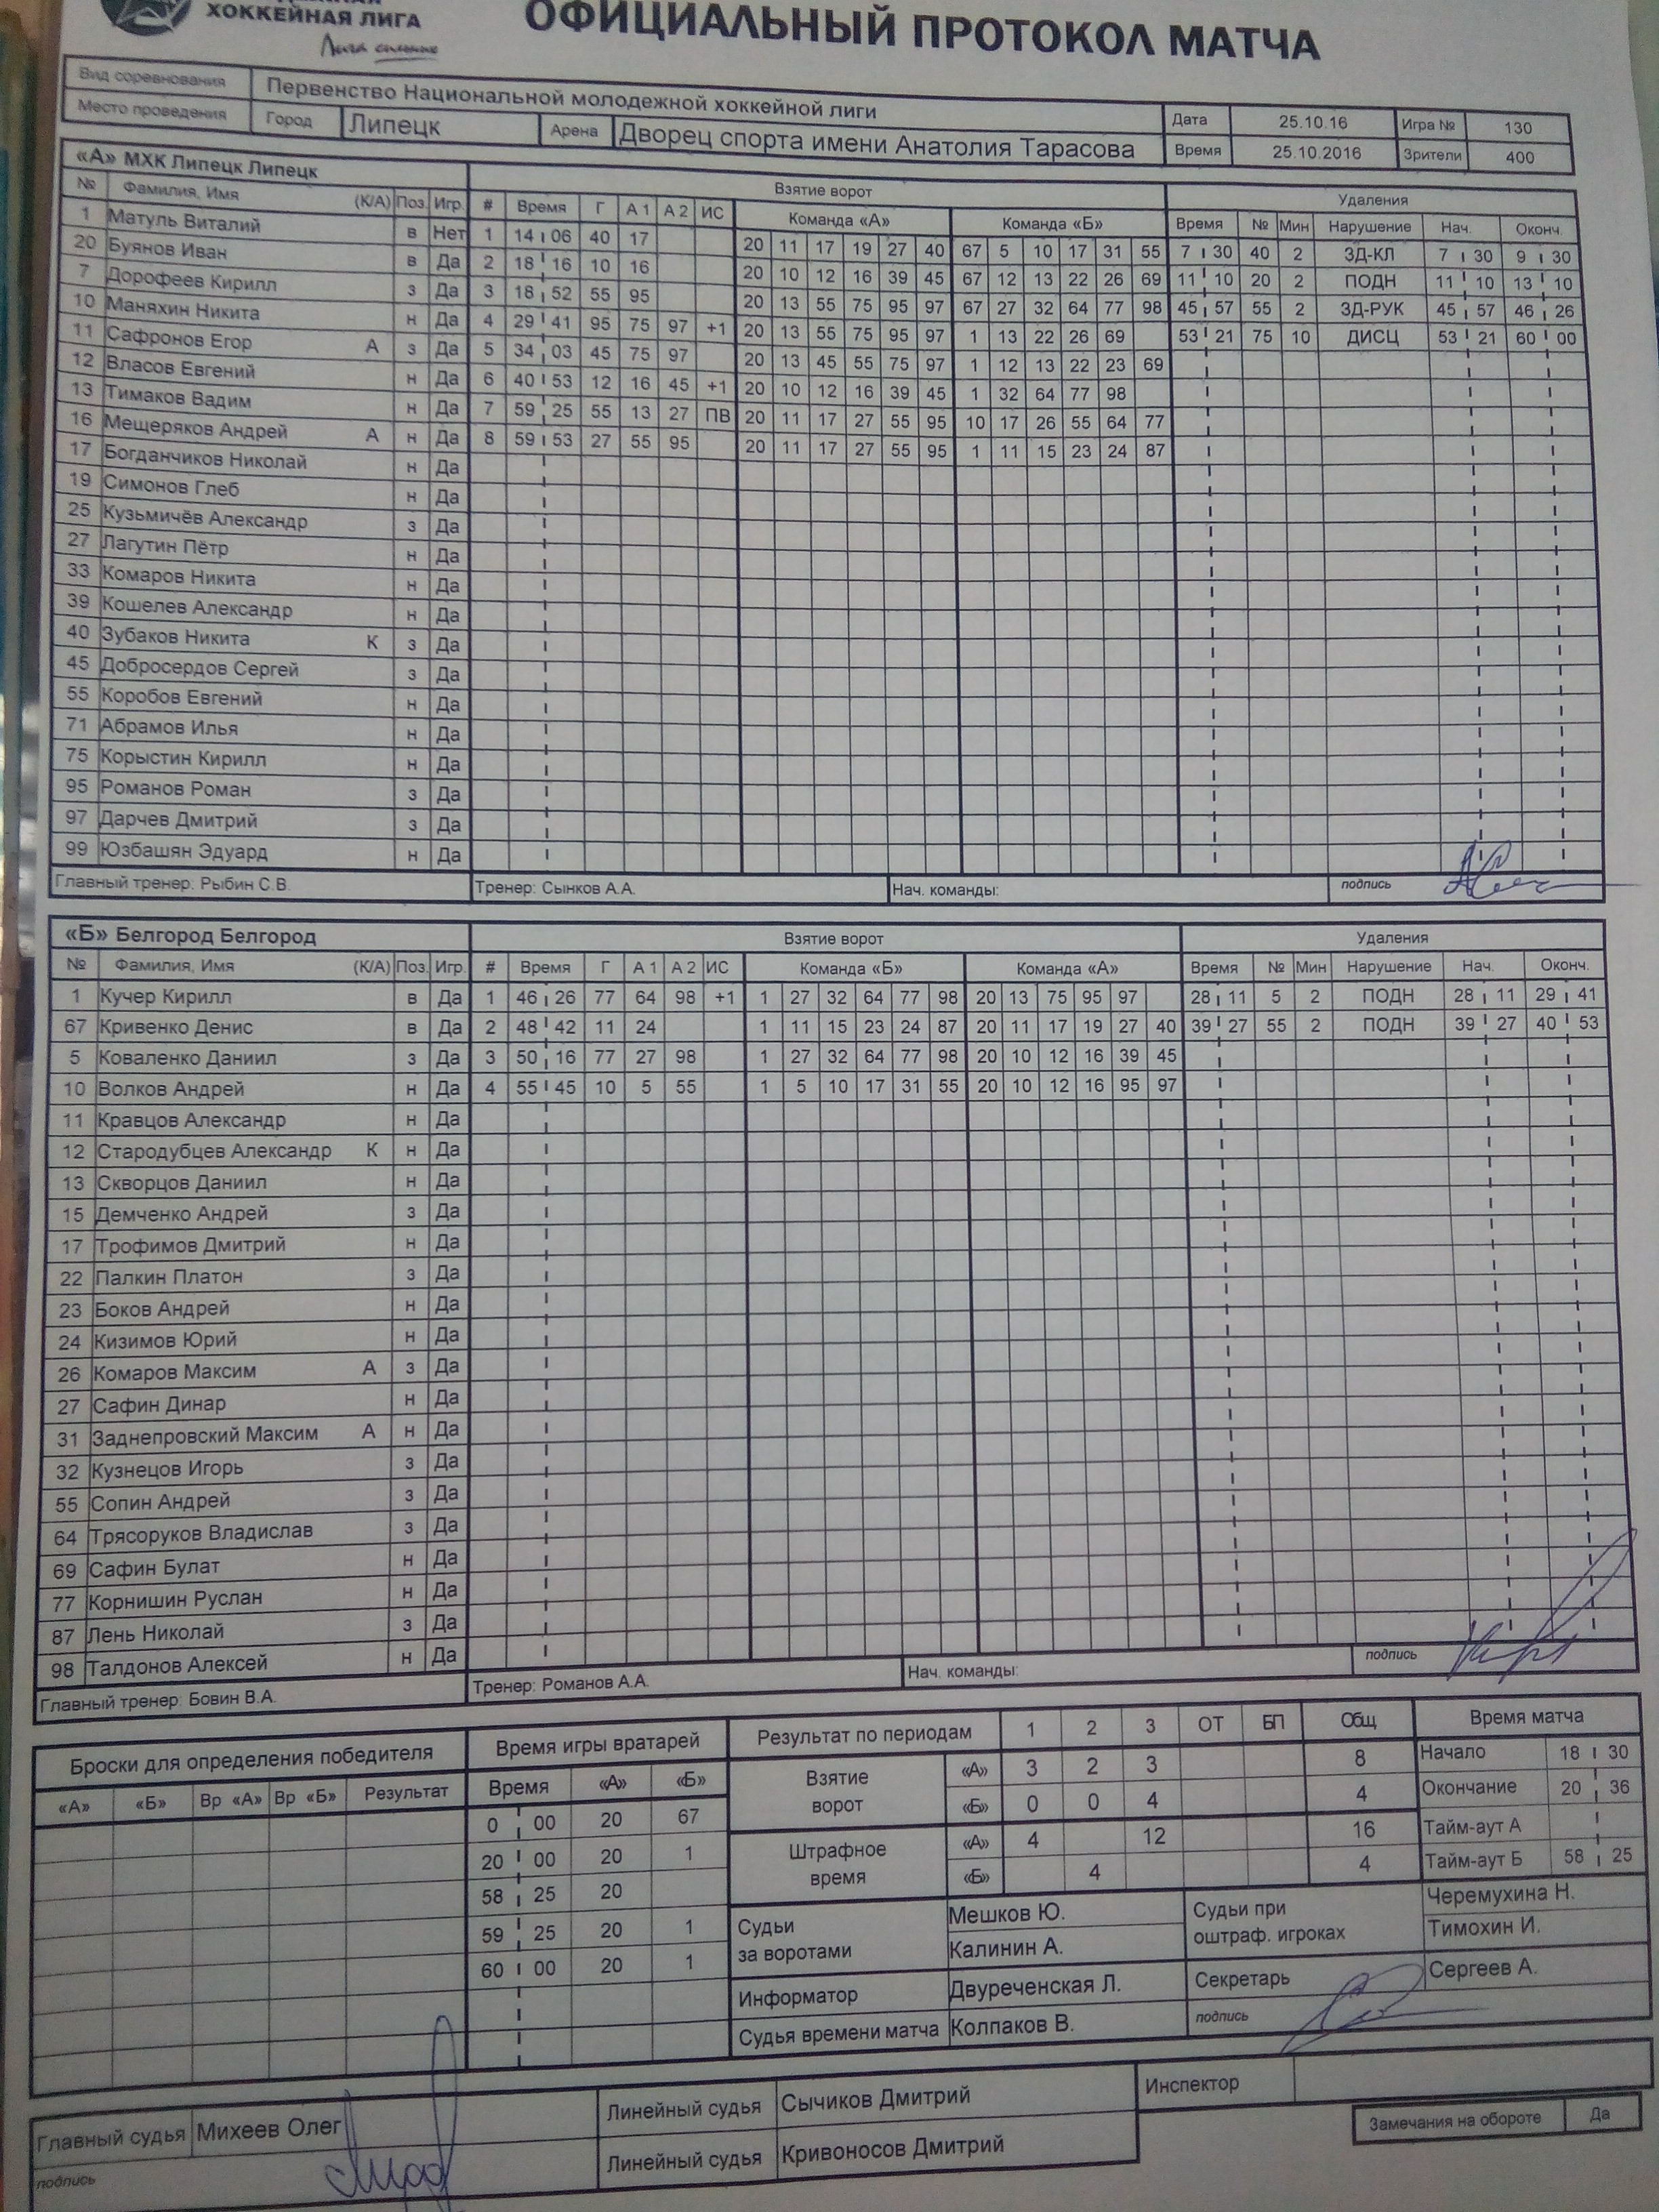 ХОККЕЙНАЯ ЛИГА
Лига сильных
ОФИЦИАЛЬНЫЙ ПРОТОКОЛ МАТЧА
Вид соревнования Первенство Национальной молодежной хоккейной лиги Дата 25.10.16 Игра № 130
Место проведения Город Липецк Арена Дворец спорта имени Анатолия Тарасова Время 25.10.2016 Зрители 400
«А» МХК Липецк Липецк Взятие ворот Удаления
№ Фамилия, Имя (К/А) Поз. Игр. # Время Г А 1 А 2 ИС Команда «А» Команда «Б» Время № Мин Нарушение Нач. Оконч.
1 Матуль Виталий в Нет 1 14 06 40 17 20 11 17 19 27 40 67 5 10 17 31 55 7 30 40 2 ЗД-КЛ 7 30 9 30
20 Буянов Иван в Да 2 18 16 10 16 20 10 12 16 39 45 67 12 13 22 26 69 11 10 20 2 ПОДН 11 10 13 10
7 Дорофеев Кирилл з Да 3 18 52 55 95 20 13 55 75 95 97 67 27 32 64 77 98 45 57 55 2 ЗД-РУК 45 57 46 26
10 Маняхин Никита н Да 4 29 41 95 75 97 +1 20 13 55 75 95 97 1 13 22 26 69 53 21 75 10 ДИСЦ 53 21 60 00
11 Сафронов Егор А з Да 5 34 03 45 75 97 20 13 45 55 75 97 1 12 13 22 23 69
12 Власов Евгений н Да 6 40 53 12 16 45 +1 20 10 12 16 39 45 1 32 64 77 98
13 Тимаков Вадим н Да 7 59 25 55 13 27 ПВ 20 11 17 27 55 95 10 17 26 55 64 77
16 Мещеряков Андрей А н Да 8 59 53 27 55 95 20 11 17 27 55 95 1 11 15 23 24 87
17 Богданчиков Николай н Да
19 Симонов Глеб н Да
25 Кузьмичёв Александр з Да
27 Лагутин Пётр н Да
33 Комаров Никита н Да
39 Кошелев Александр н Да
40 Зубаков Никита К з Да
45 Добросердов Сергей з Да
55 Коробов Евгений н Да
71 Абрамов Илья н Да
75 Корыстин Кирилл н Да
95 Романов Роман з Да
97 Дарчев Дмитрий з Да
99 Юзбашян Эдуард н Да
Главный тренер: Рыбин С.В. Тренер: Сынков А.А. Нач. команды: подпись
«Б» Белгород Белгород Взятие ворот Удаления
№ Фамилия, Имя (К/А) Поз. Игр. # Время Г А 1 А 2 ИС Команда «Б» Команда «А» Время № Мин Нарушение Нач. Оконч.
1 Кучер Кирилл в Да 1 46 26 77 64 98 +1 1 27 32 64 77 98 20 13 75 95 97 28 11 5 2 ПОДН 28 11 29 41
67 Кривенко Денис в Да 2 48 42 11 24 1 11 15 23 24 87 20 11 17 19 27 40 39 27 55 2 ПОДН 39 27 40 53
5 Коваленко Даниил з Да 3 50 16 77 27 98 1 27 32 64 77 98 20 10 12 16 39 45
10 Волков Андрей н Да 4 55 45 10 5 55 1 5 10 17 31 55 20 10 12 16 95 97
11 Кравцов Александр н Да
12 Стародубцев Александр К н Да
13 Скворцов Даниил н Да
15 Демченко Андрей з Да
17 Трофимов Дмитрий н Да
22 Палкин Платон з Да
23 Боков Андрей н Да
24 Кизимов Юрий н Да
26 Комаров Максим А з Да
27 Сафин Динар н Да
31 Заднепровский Максим А н Да
32 Кузнецов Игорь з Да
55 Сопин Андрей з Да
64 Трясоруков Владислав з Да
69 Сафин Булат н Да
77 Корнишин Руслан н Да
87 Лень Николай з Да
98 Талдонов Алексей н Да
Главный тренер: Бовин В.А. Тренер: Романов А.А. Нач. команды: подпись
Броски для определения победителя Время игры вратарей Результат по периодам 1 2 3 ОТ БП Общ Время матча
«А» «Б» Вр «А» Вр «Б» Результат Время «А» «Б» Взятие ворот «А» 3 2 3 8 Начало 18 30
0 00 20 67 «Б» 0 0 4 4 Окончание 20 36
20 00 20 1 Штрафное время «А» 4 12 16 Тайм-аут А
58 25 20 «Б» 4 4 Тайм-аут Б 58 25
59 25 20 1 Судьи за воротами Мешков Ю. Судьи при оштраф. игроках Черемухина Н.
Калинин А. Тимохин И.
60 00 20 1 Информатор Двуреченская Л. Секретарь Сергеев А.
Судья времени матча Колпаков В. подпись
Главный судья Михеев Олег Линейный судья Сычиков Дмитрий Инспектор
подпись Линейный судья Кривоносов Дмитрий Замечания на обороте Да